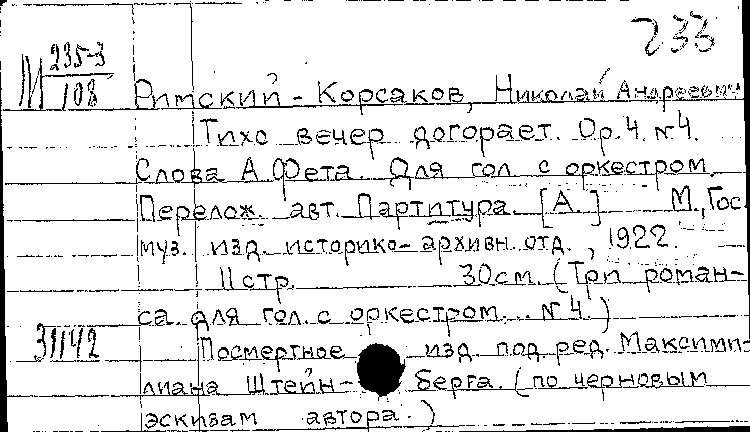 233
М 235-3
108
Римский-Корсаков, Николай Андреевич
Тихо вечер догорает. Ор.4. №4.
Слова А.Фета. Для гол. с оркестром.
Перелож. авт. Партитура. [А.] М., Гос.
муз. изд. историко-архивн. отд., 1922.
11 стр. 30см. (Три роман-
са для гол. с оркестром... №4.)
31142 Посмертное изд. под ред. Максими-
лиана Штейн-берга. (по черновым
эскизам автора.)